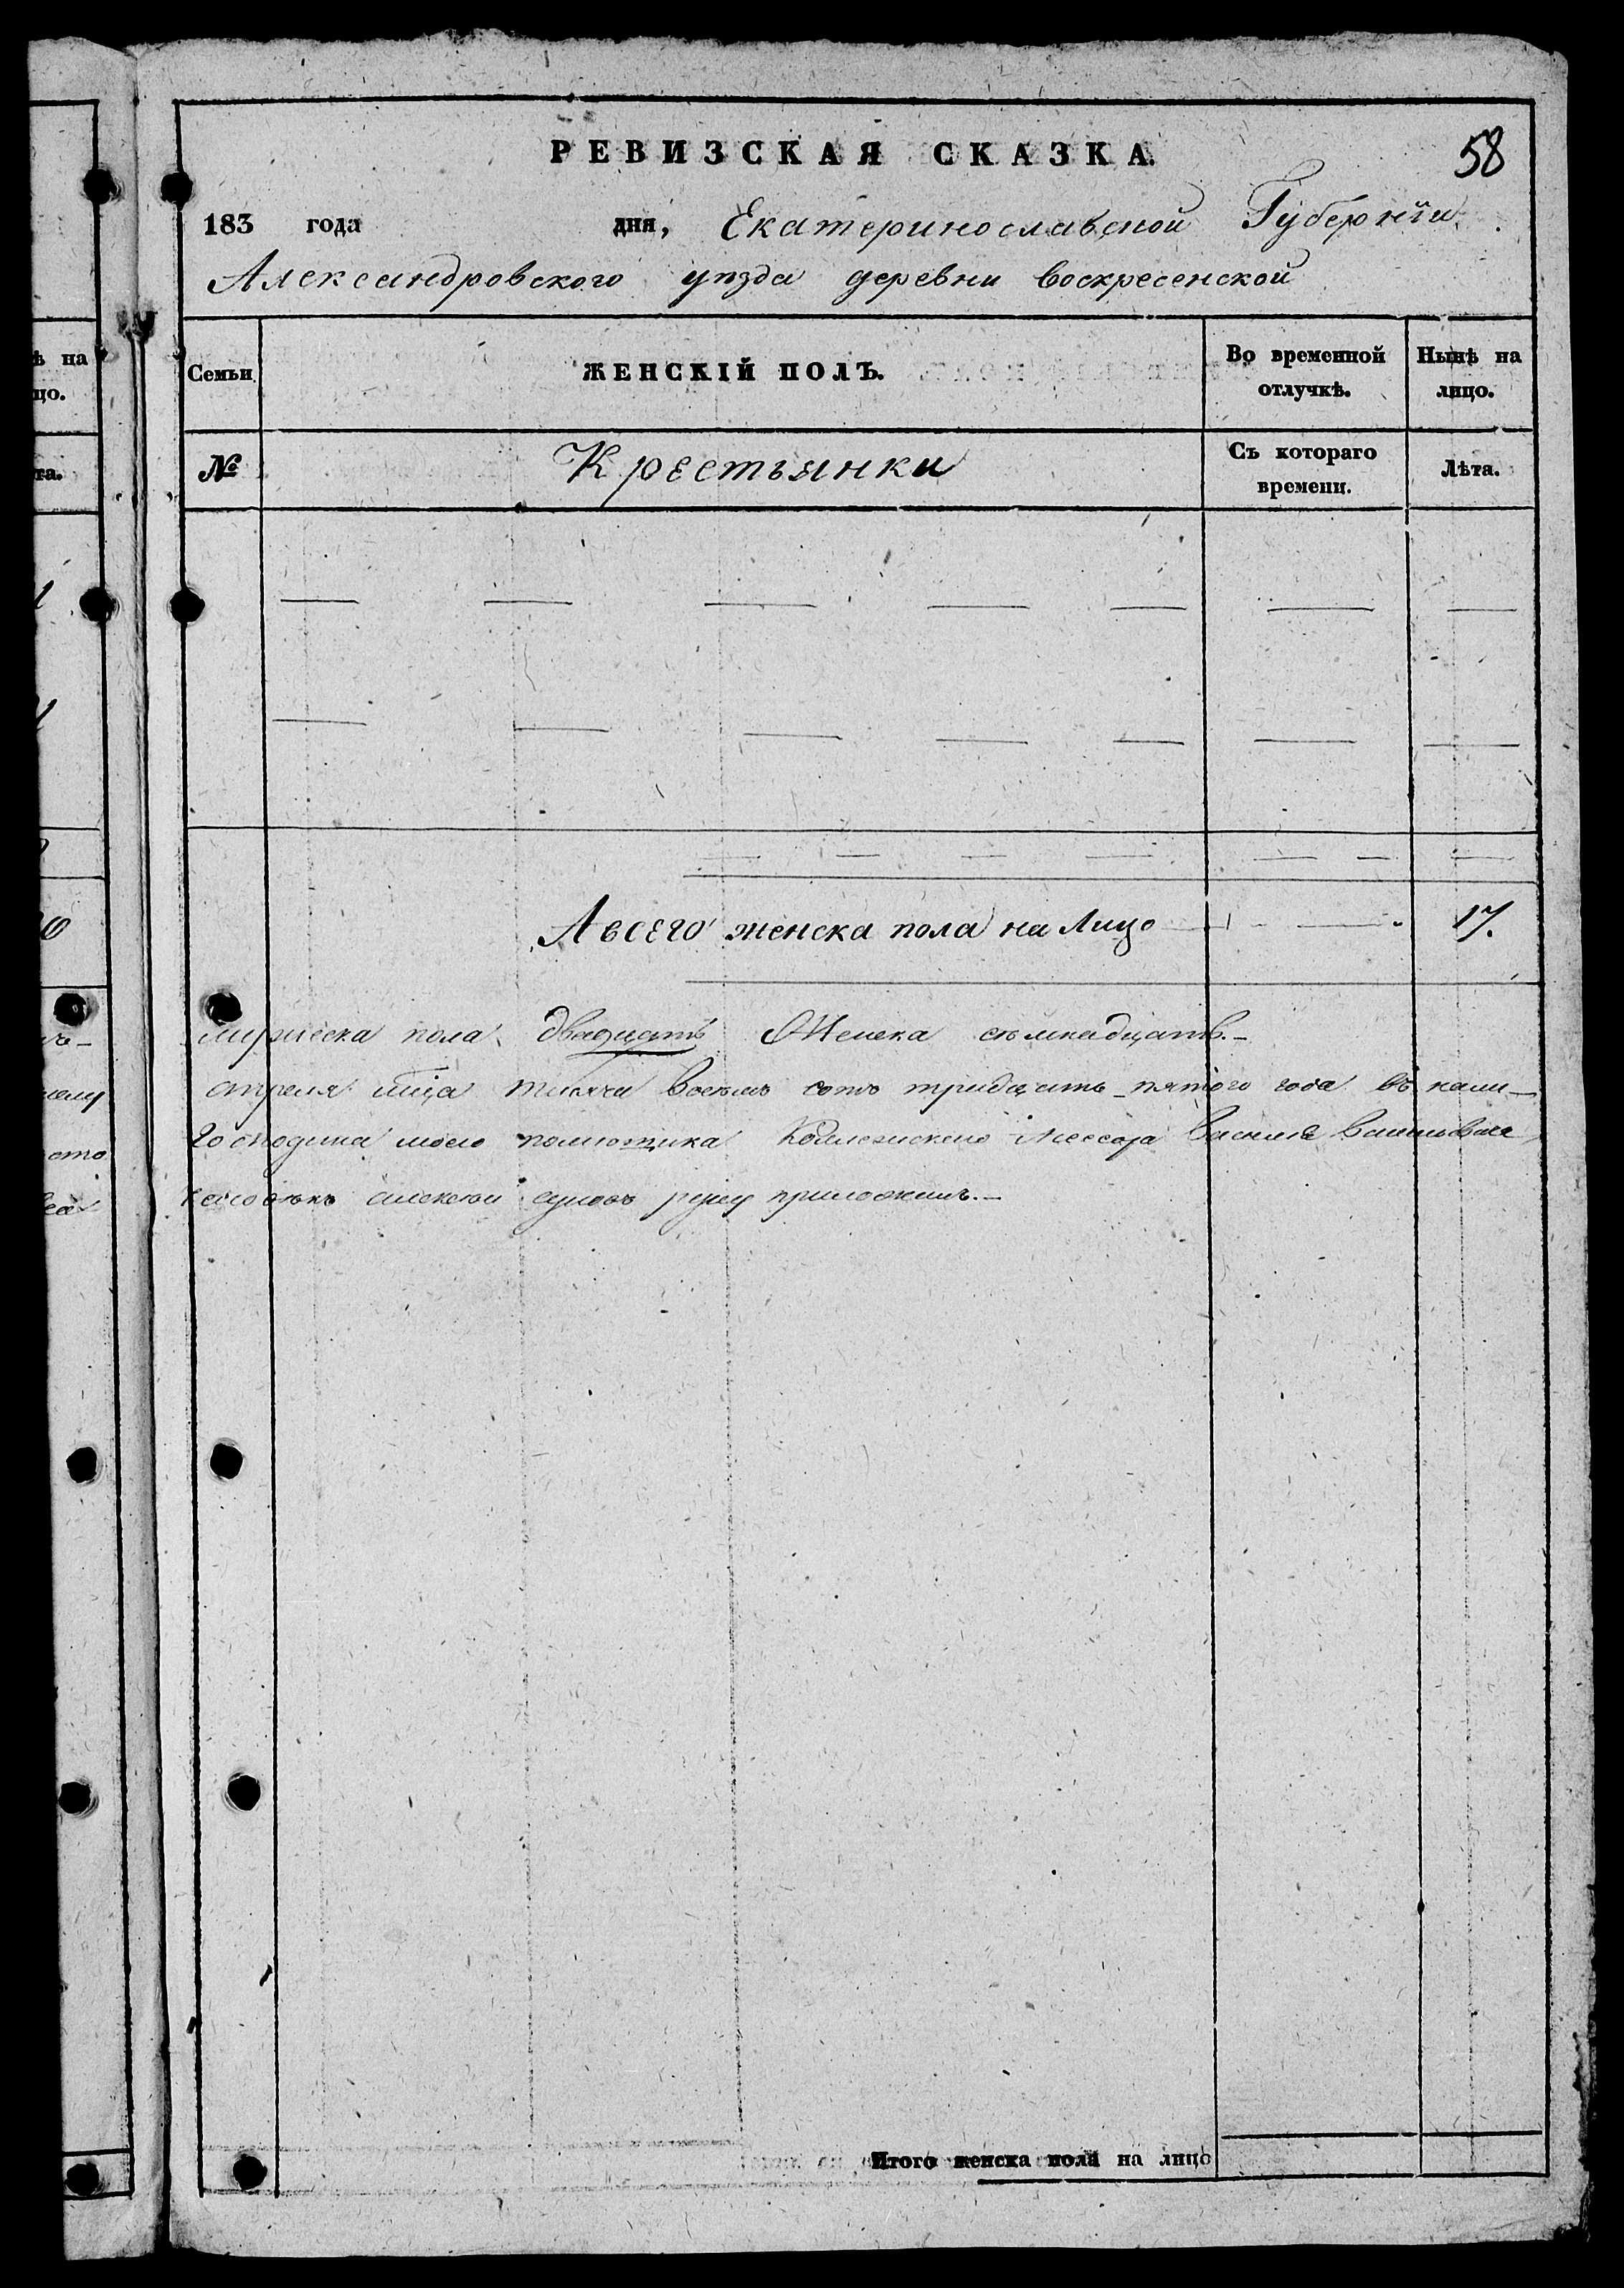 РЕВИЗСКАЯ СКАЗКА.
58
183 года дня, Екатеринославской Губернїи
Александровского уѣзда деревни воскресенской
ѣ на
цо.
Семьи
ЖЕНСКІЙ ПОЛЪ.
Во временной отлучкѣ.
Нынѣ на лицо.
та.
№
Крестьянки
Съ котораго времени.
Лѣта.
А всего женска пола на Лицо 17.
мужеска пола двадцать Женска сѣмнадцать.
апреля мца тысяча восемь сотъ тридцать пятого года въ
господина моего помющика Василия
алексѣй руку приложилъ.
Итого женска пола на лицо